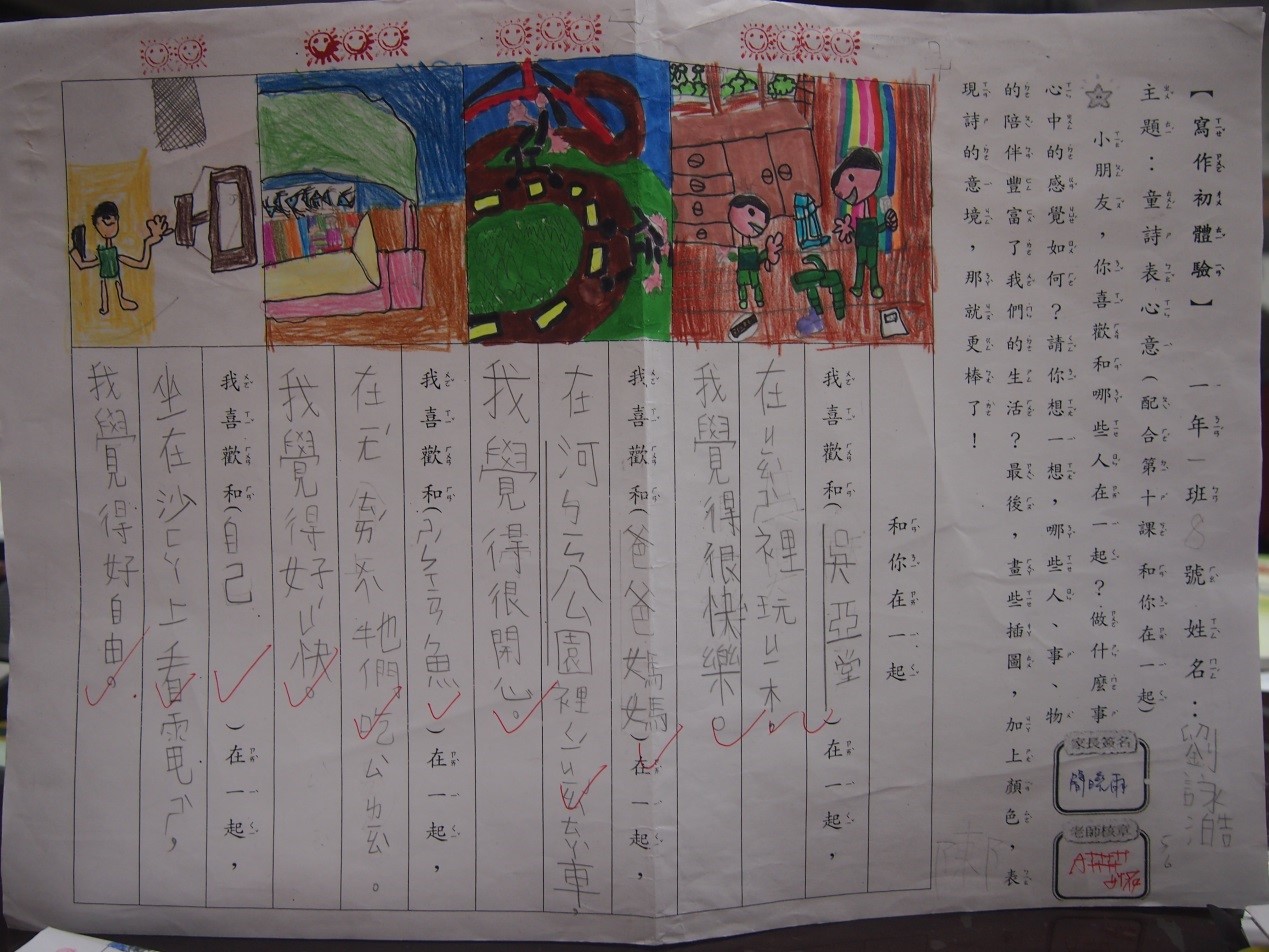 【寫作初體驗】 一年一班8號姓名：劉詠澔
主題：童詩表心意(配合第十課和你在一起)
小朋友，你喜歡和哪些人在一起？做什麼事
心中的感覺如何？請你想一想，哪些人、事、物
的陪伴豐富了我們的生活？最後，畫些插圖，加上顏色，表
現詩的意境，那就更棒了！
家長簽名
老師核章
和你在一起
我喜歡和(吳亞堂)在一起，
裡玩ㄐㄧ木。
我覺得很快樂。
我喜歡和(爸爸媽媽)在一起，
在河ㄅㄢ公園裡ㄑㄧㄠ車，
我覺得很開心。
我喜歡和(魚)在一起，
牠們吃
我覺得好心快。
我喜歡和(自己)在一起，
坐在沙ㄈㄚ上看電ㄕ，
我覺得好自由。